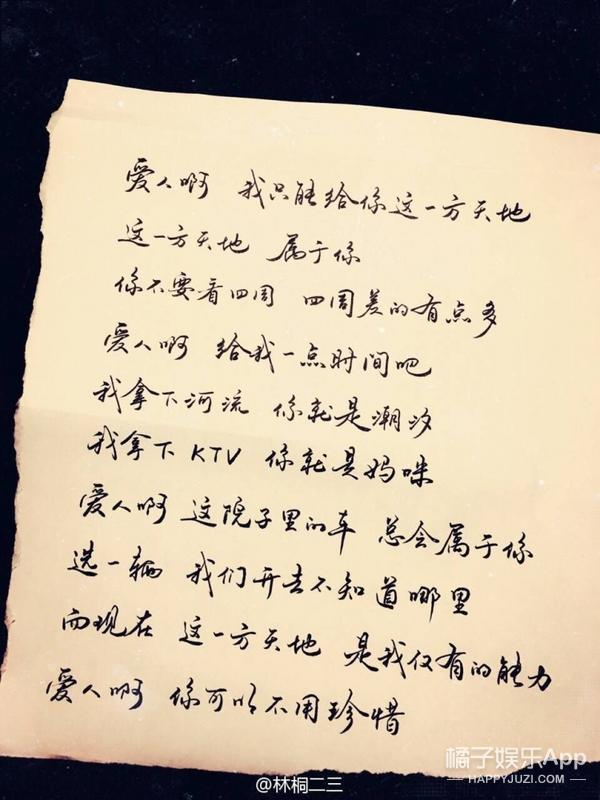 爱人啊 我只能给你这一方天地
这一方天地 属于你
你不要看四周 四周差的有点多
爱人啊 给我一点时间吧
我拿下河流 你就是潮汐
我拿下KTV 你就是妈咪
爱人啊 这院子里的车 总会属于你
选一辆 我们开去不知道哪里
而现在 这一方天地 是我仅有的能力
爱人啊 你可以不用珍惜
橘子娱乐App
HAPPYJUZI.COM
@林桐二三